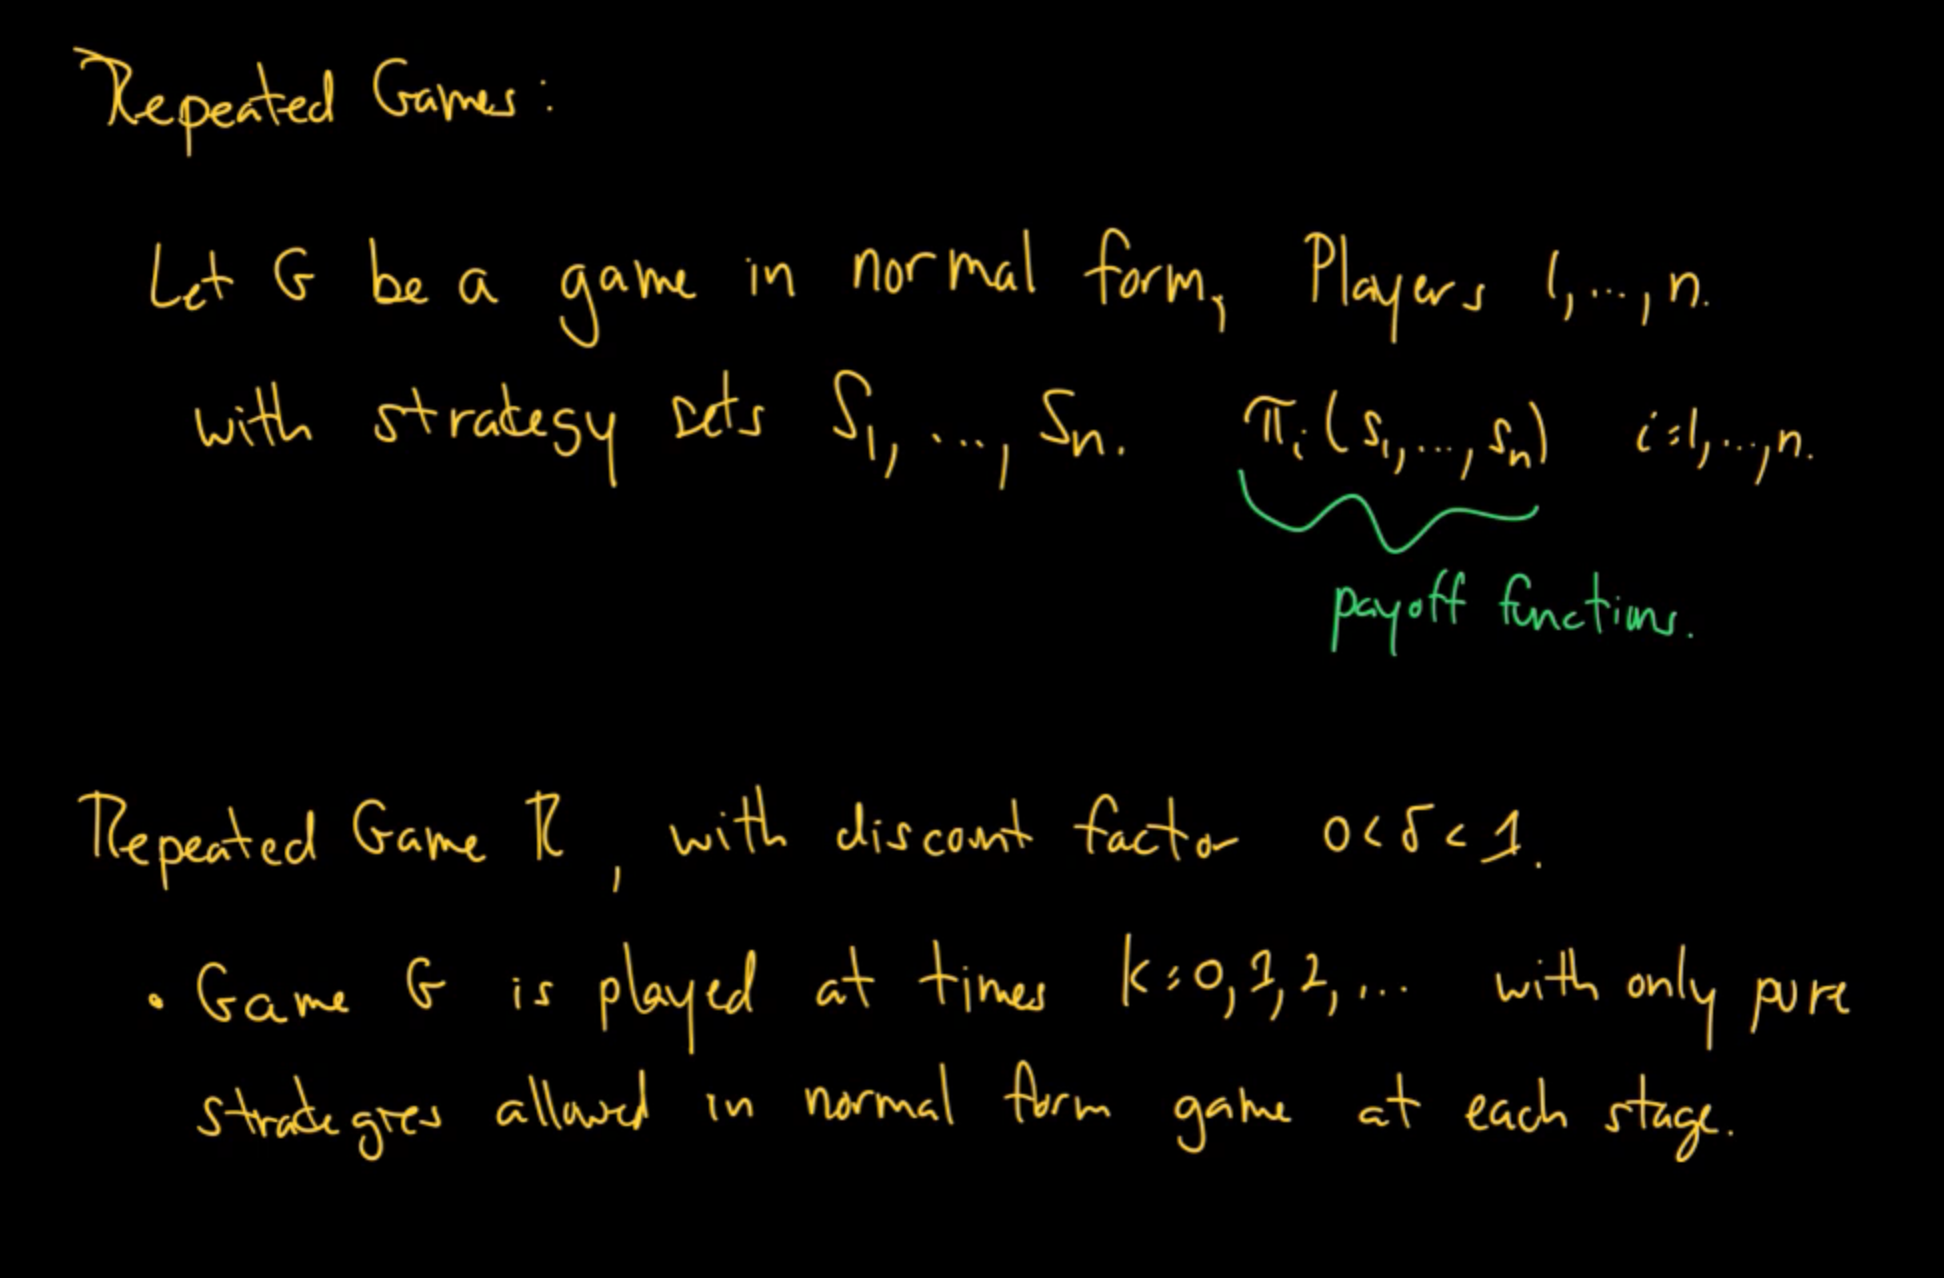 Repeated Games:
Let G be a game in normal form, Players 1,...,n.
with strategy sets S₁, ..., Sₙ. πᵢ(s₁,...,sₙ) i=1,...,n.
payoff functions.
Repeated Game R, with discount factor 0<δ<1.
• Game G is played at times k=0,1,2,... with only pure
strategies allowed in normal form game at each stage.